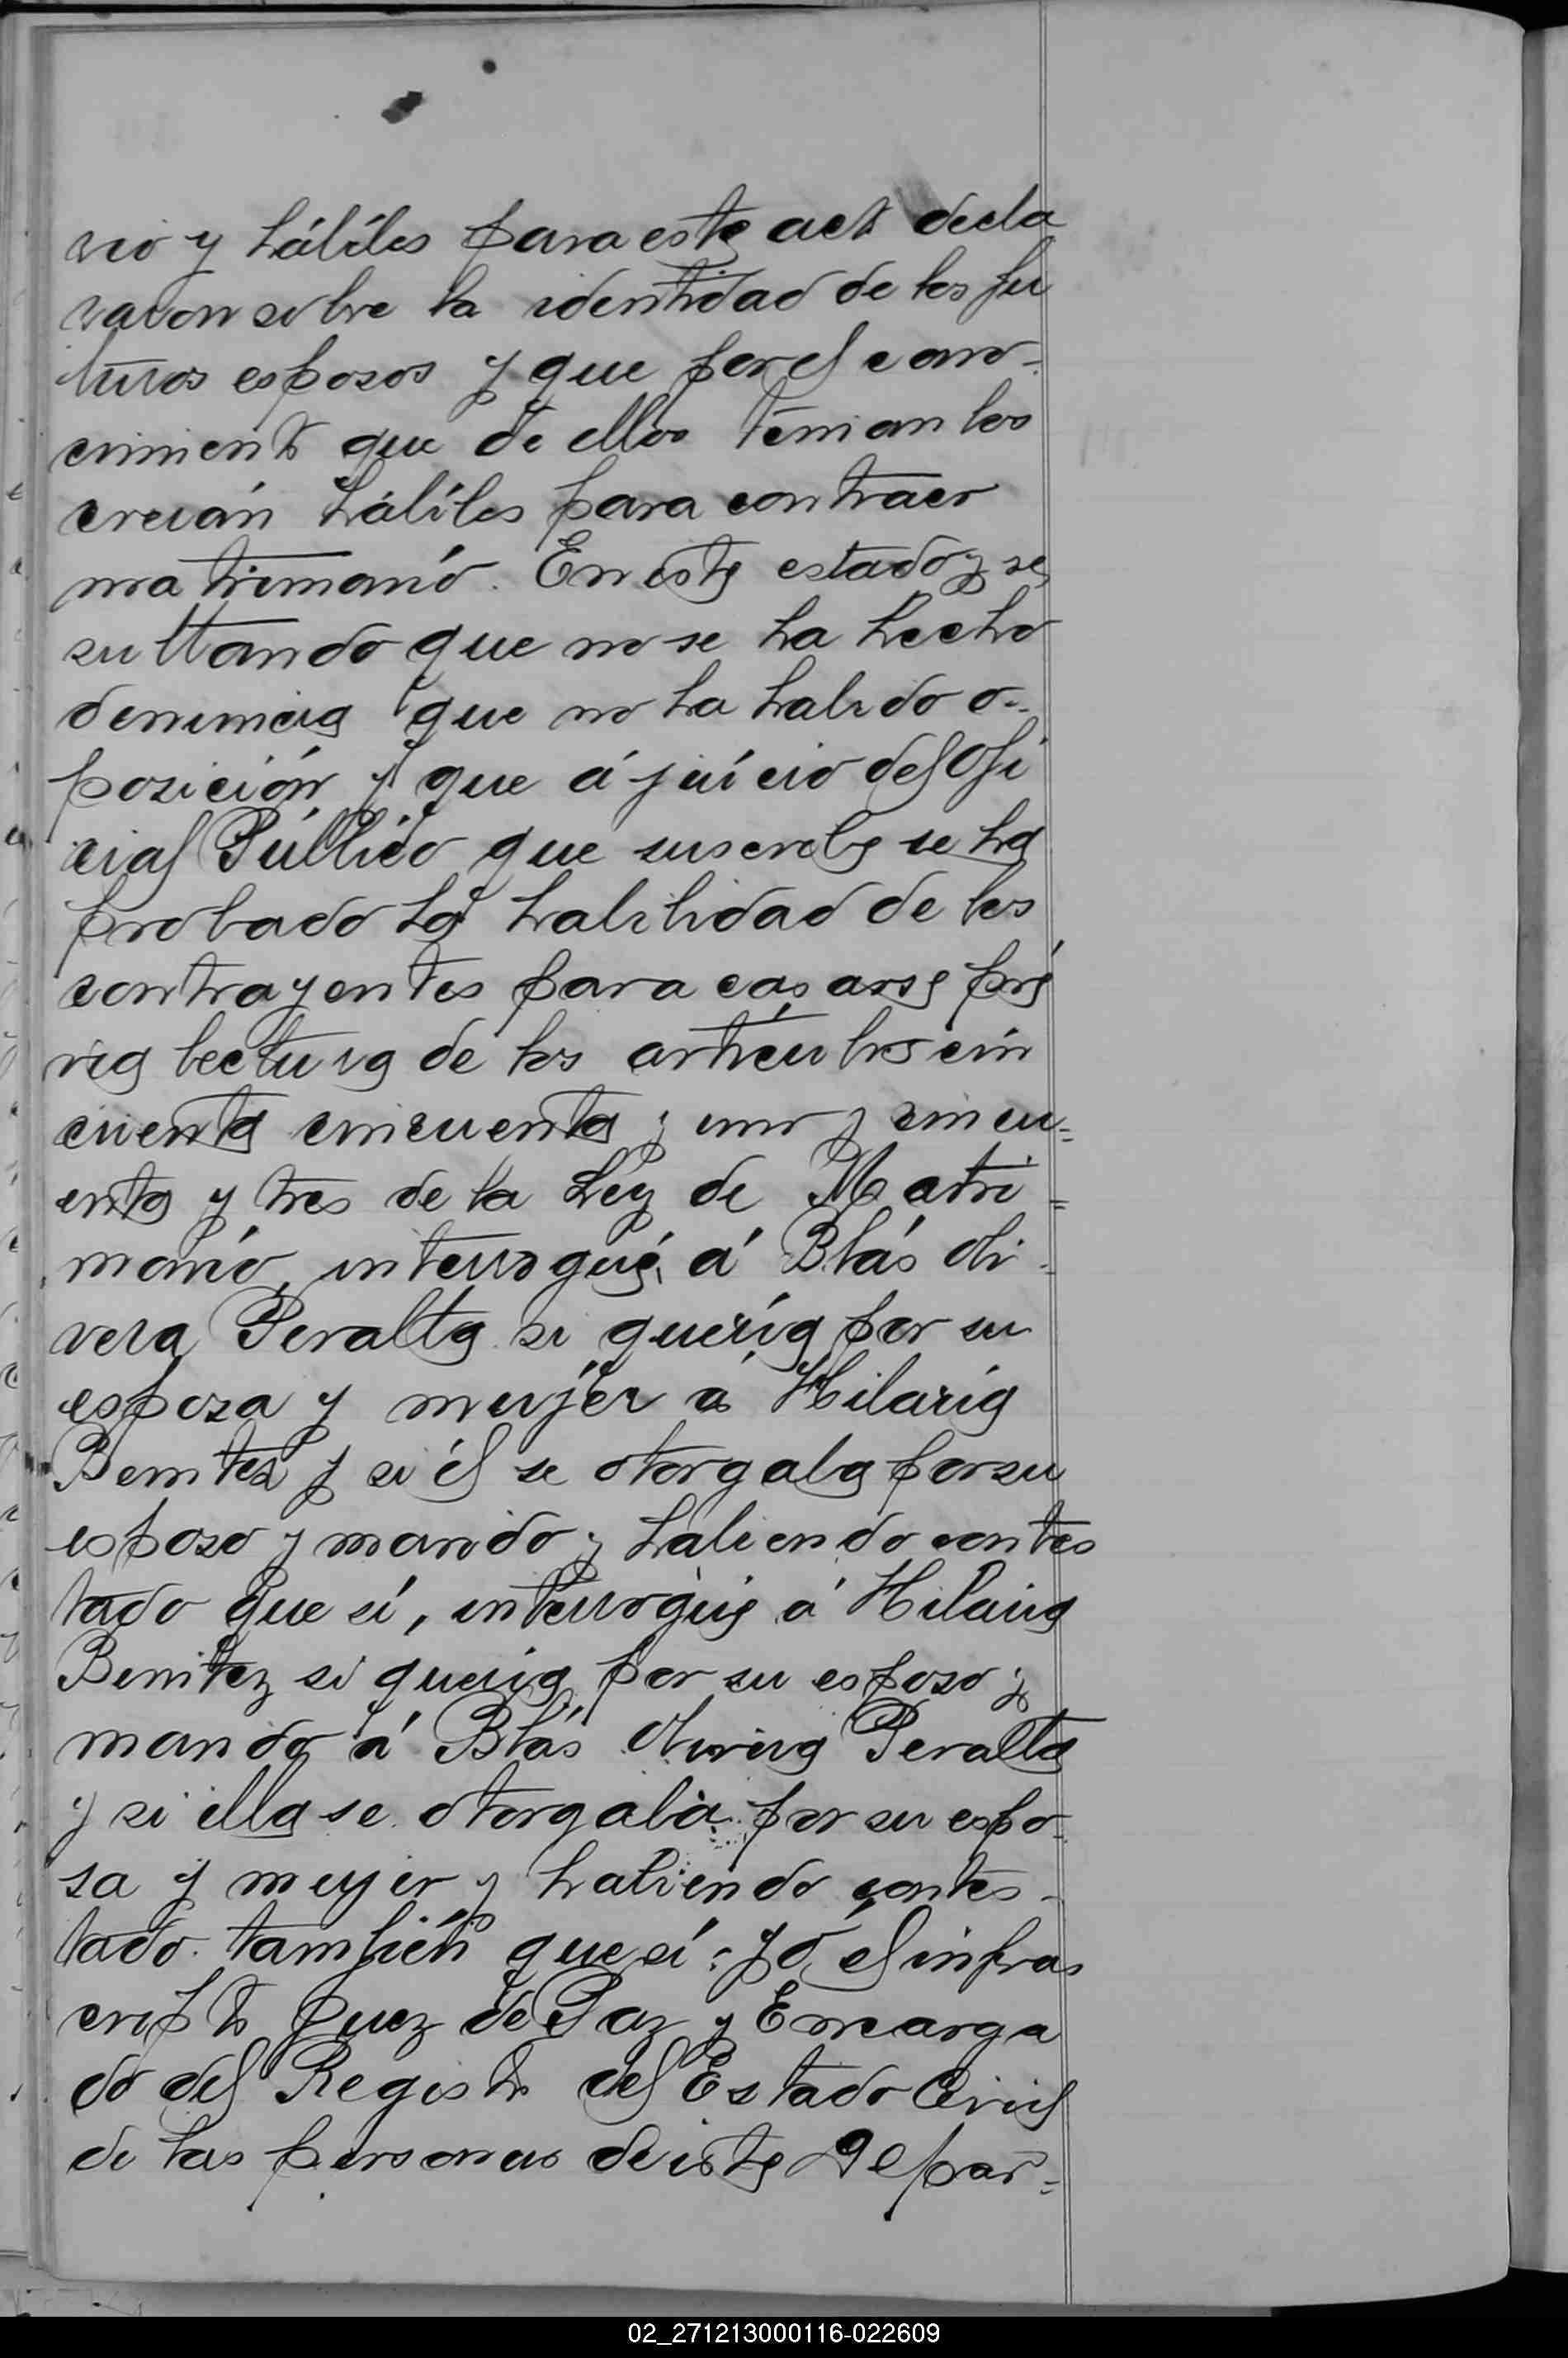 rio y hábiles para este acto decla
raron sobre la identidad de los fu
turos esposos y que por el cono-
cimiento que de ellos tenian los
creián hábiles para contraer
matrimonió. En este estado y re
sultando que no se ha hecho
denuncia que no ha habido o-
posición y que á juício del Ofi
cial Públíco que suscribe se ha
probado la habilidad de los
contrayentes para casarse pré
via lectura de los artículos cin
cuenta cincuenta y uno y cincu-
enta y tres de la Ley de Matri=
monió, interrogué á Blás Oli-
vera Peralta si quería por su
esposa y mujer á Hilaria
Benitez y si él se otorgaba por su
esposo y marido y habiendo contes
tado que sí, interrogué á Hilaria
Benitez si queria por su esposo y
marido á Blás Olivera Peralta
y si ella se otorgaba por su espo-
sa y mujer y habiendo contes-
tado también que sí: yó, el infras
cripto Juez de Paz y Encarga
do del Registro del Estado Civil
de las personas de este Depar-
02_271213000116-022609